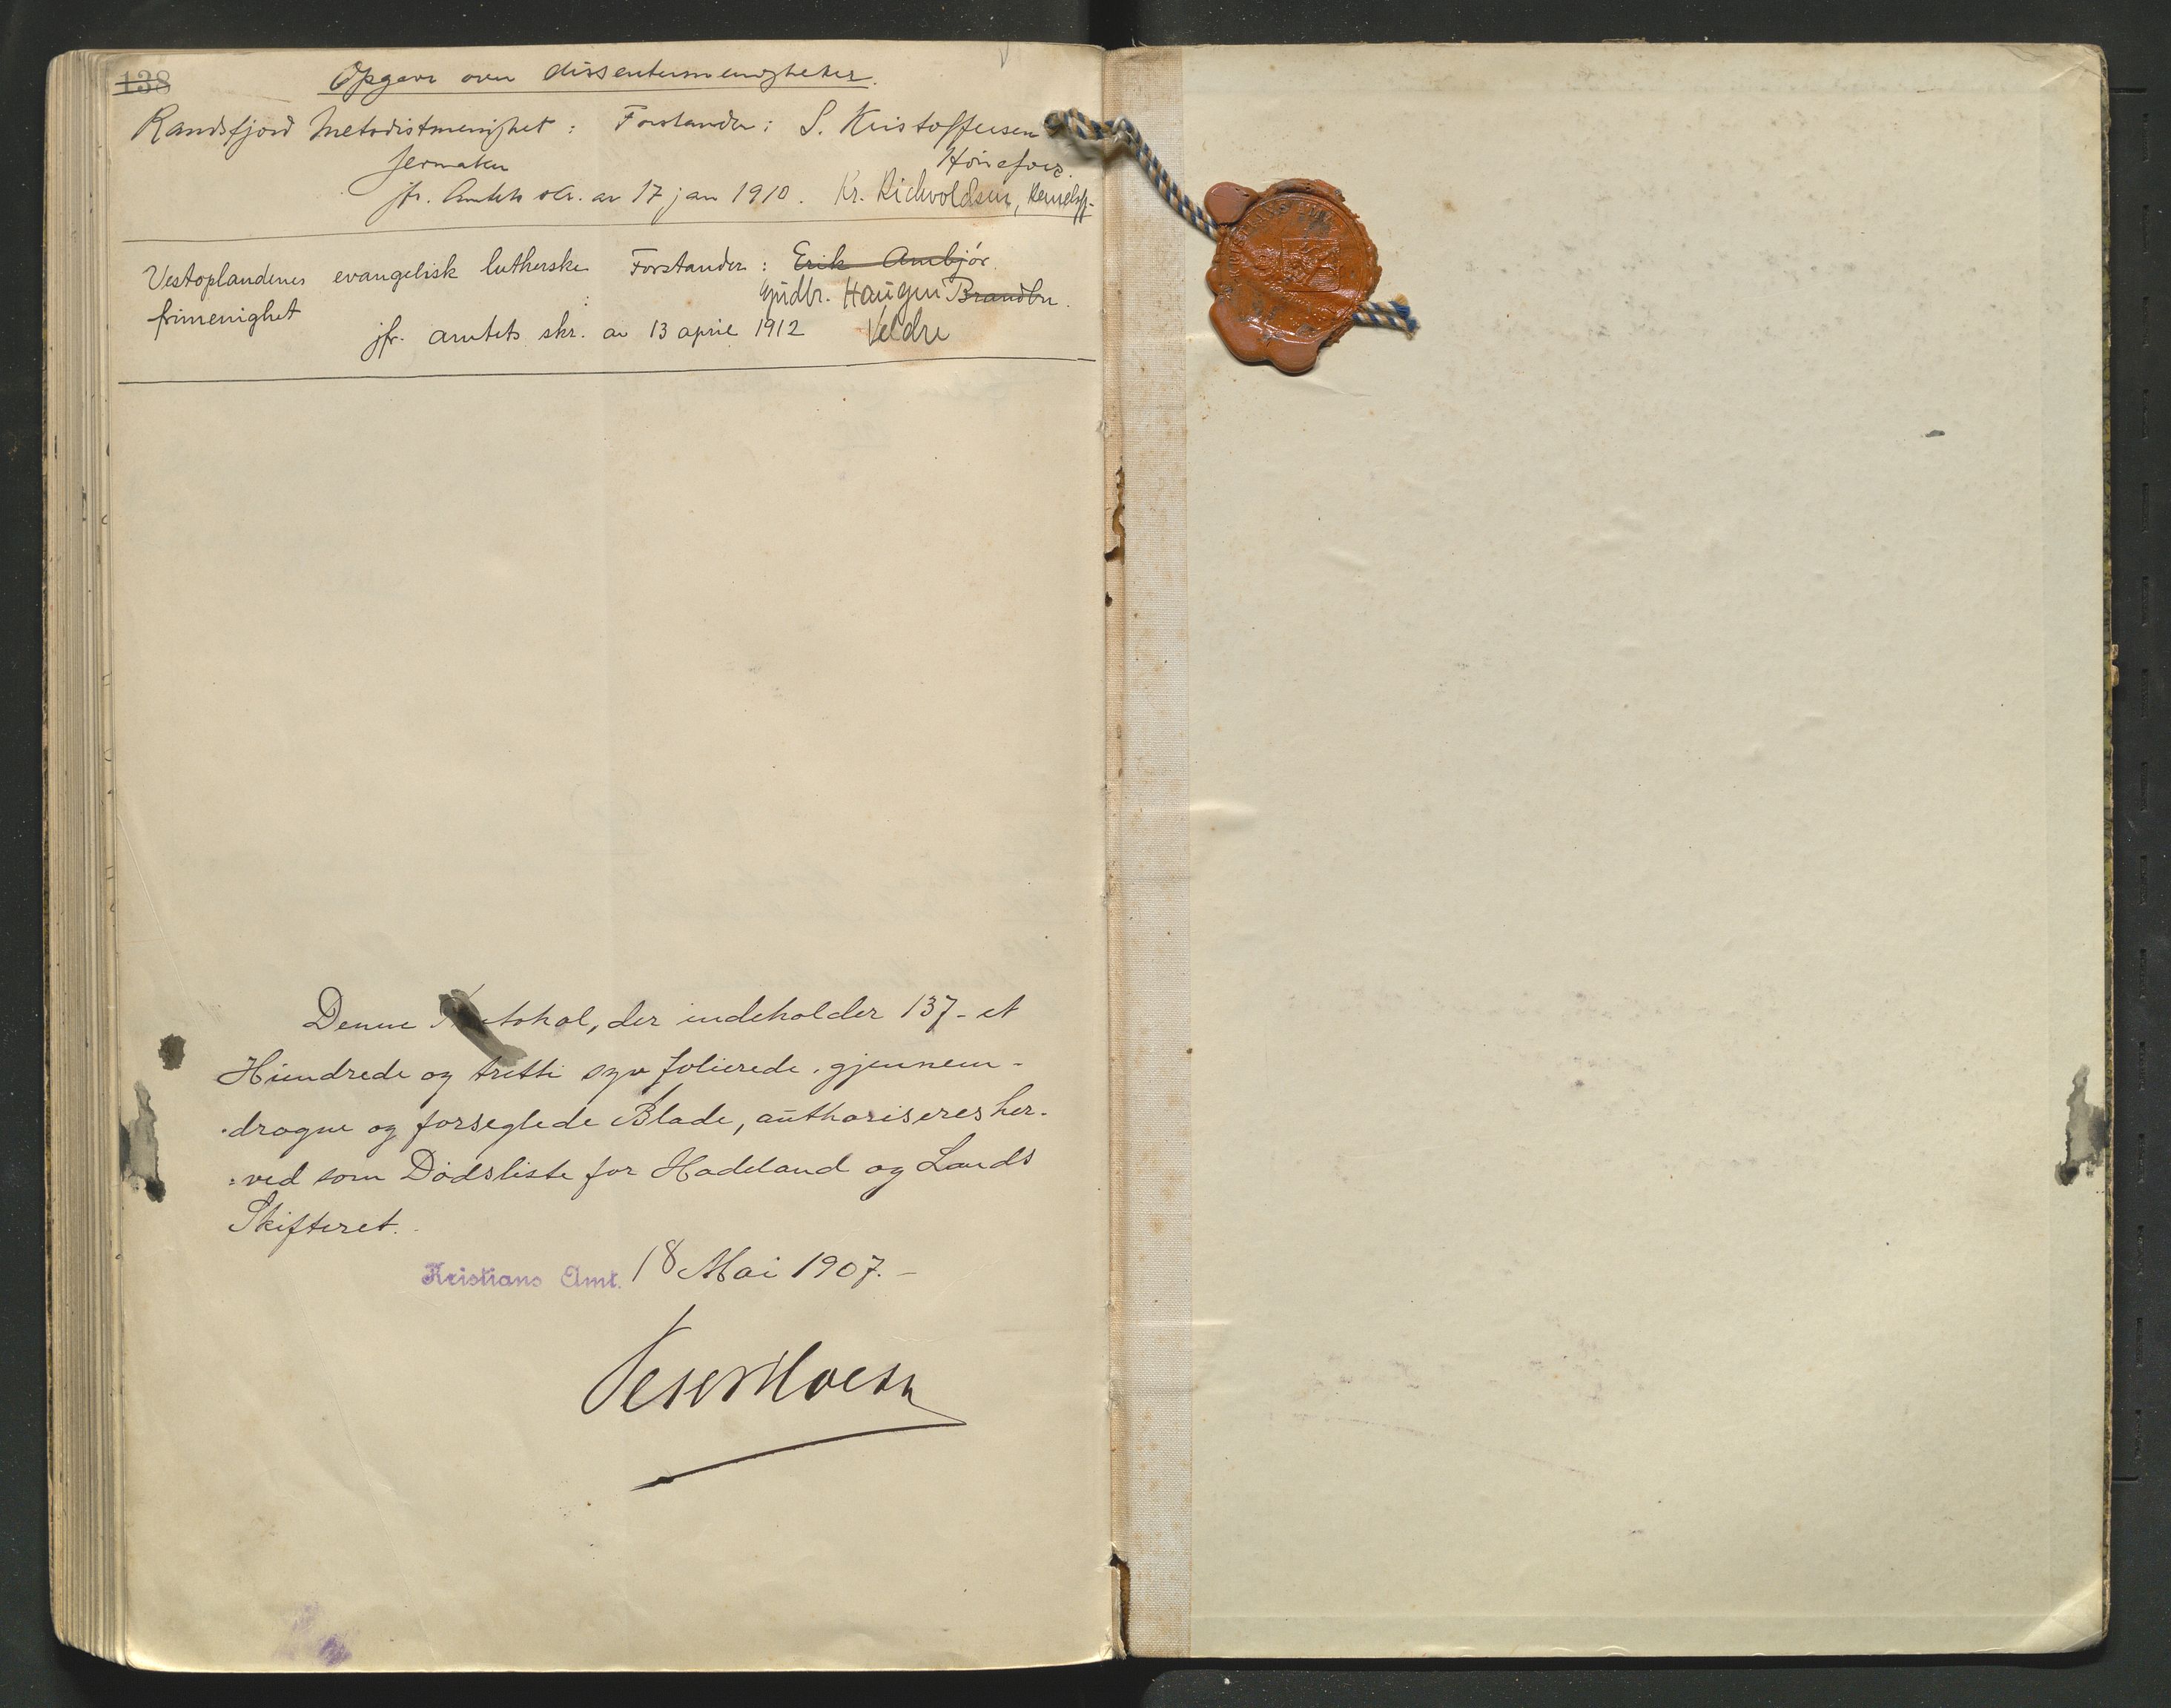 138
Opgave over dissentermenigheter.
Randsfjord Metodistmenighet: Forstander: S. Kristoffersen
Jevnaker Hönefoss.
jfr. Amtets skr. av 17 jan 1910. Kr. Richvoldsen,
Vestoplandenes evangelisk lutherske Forstander: Erik Arnbjör
frimenighet Gudbr. Haugen Brandbu.
jfr. amtets skr. av 13 april 1912 Veldre
Denne Protokol, der indeholder 137- et
Hundrede og tretti syv folierede, gjennem-
dragne og forseglede Blade, authoriseres her-
ved som Dödsliste for Hadeland og Lands
Skifteret.
Kristians Amt. 18 Mai 1907.-